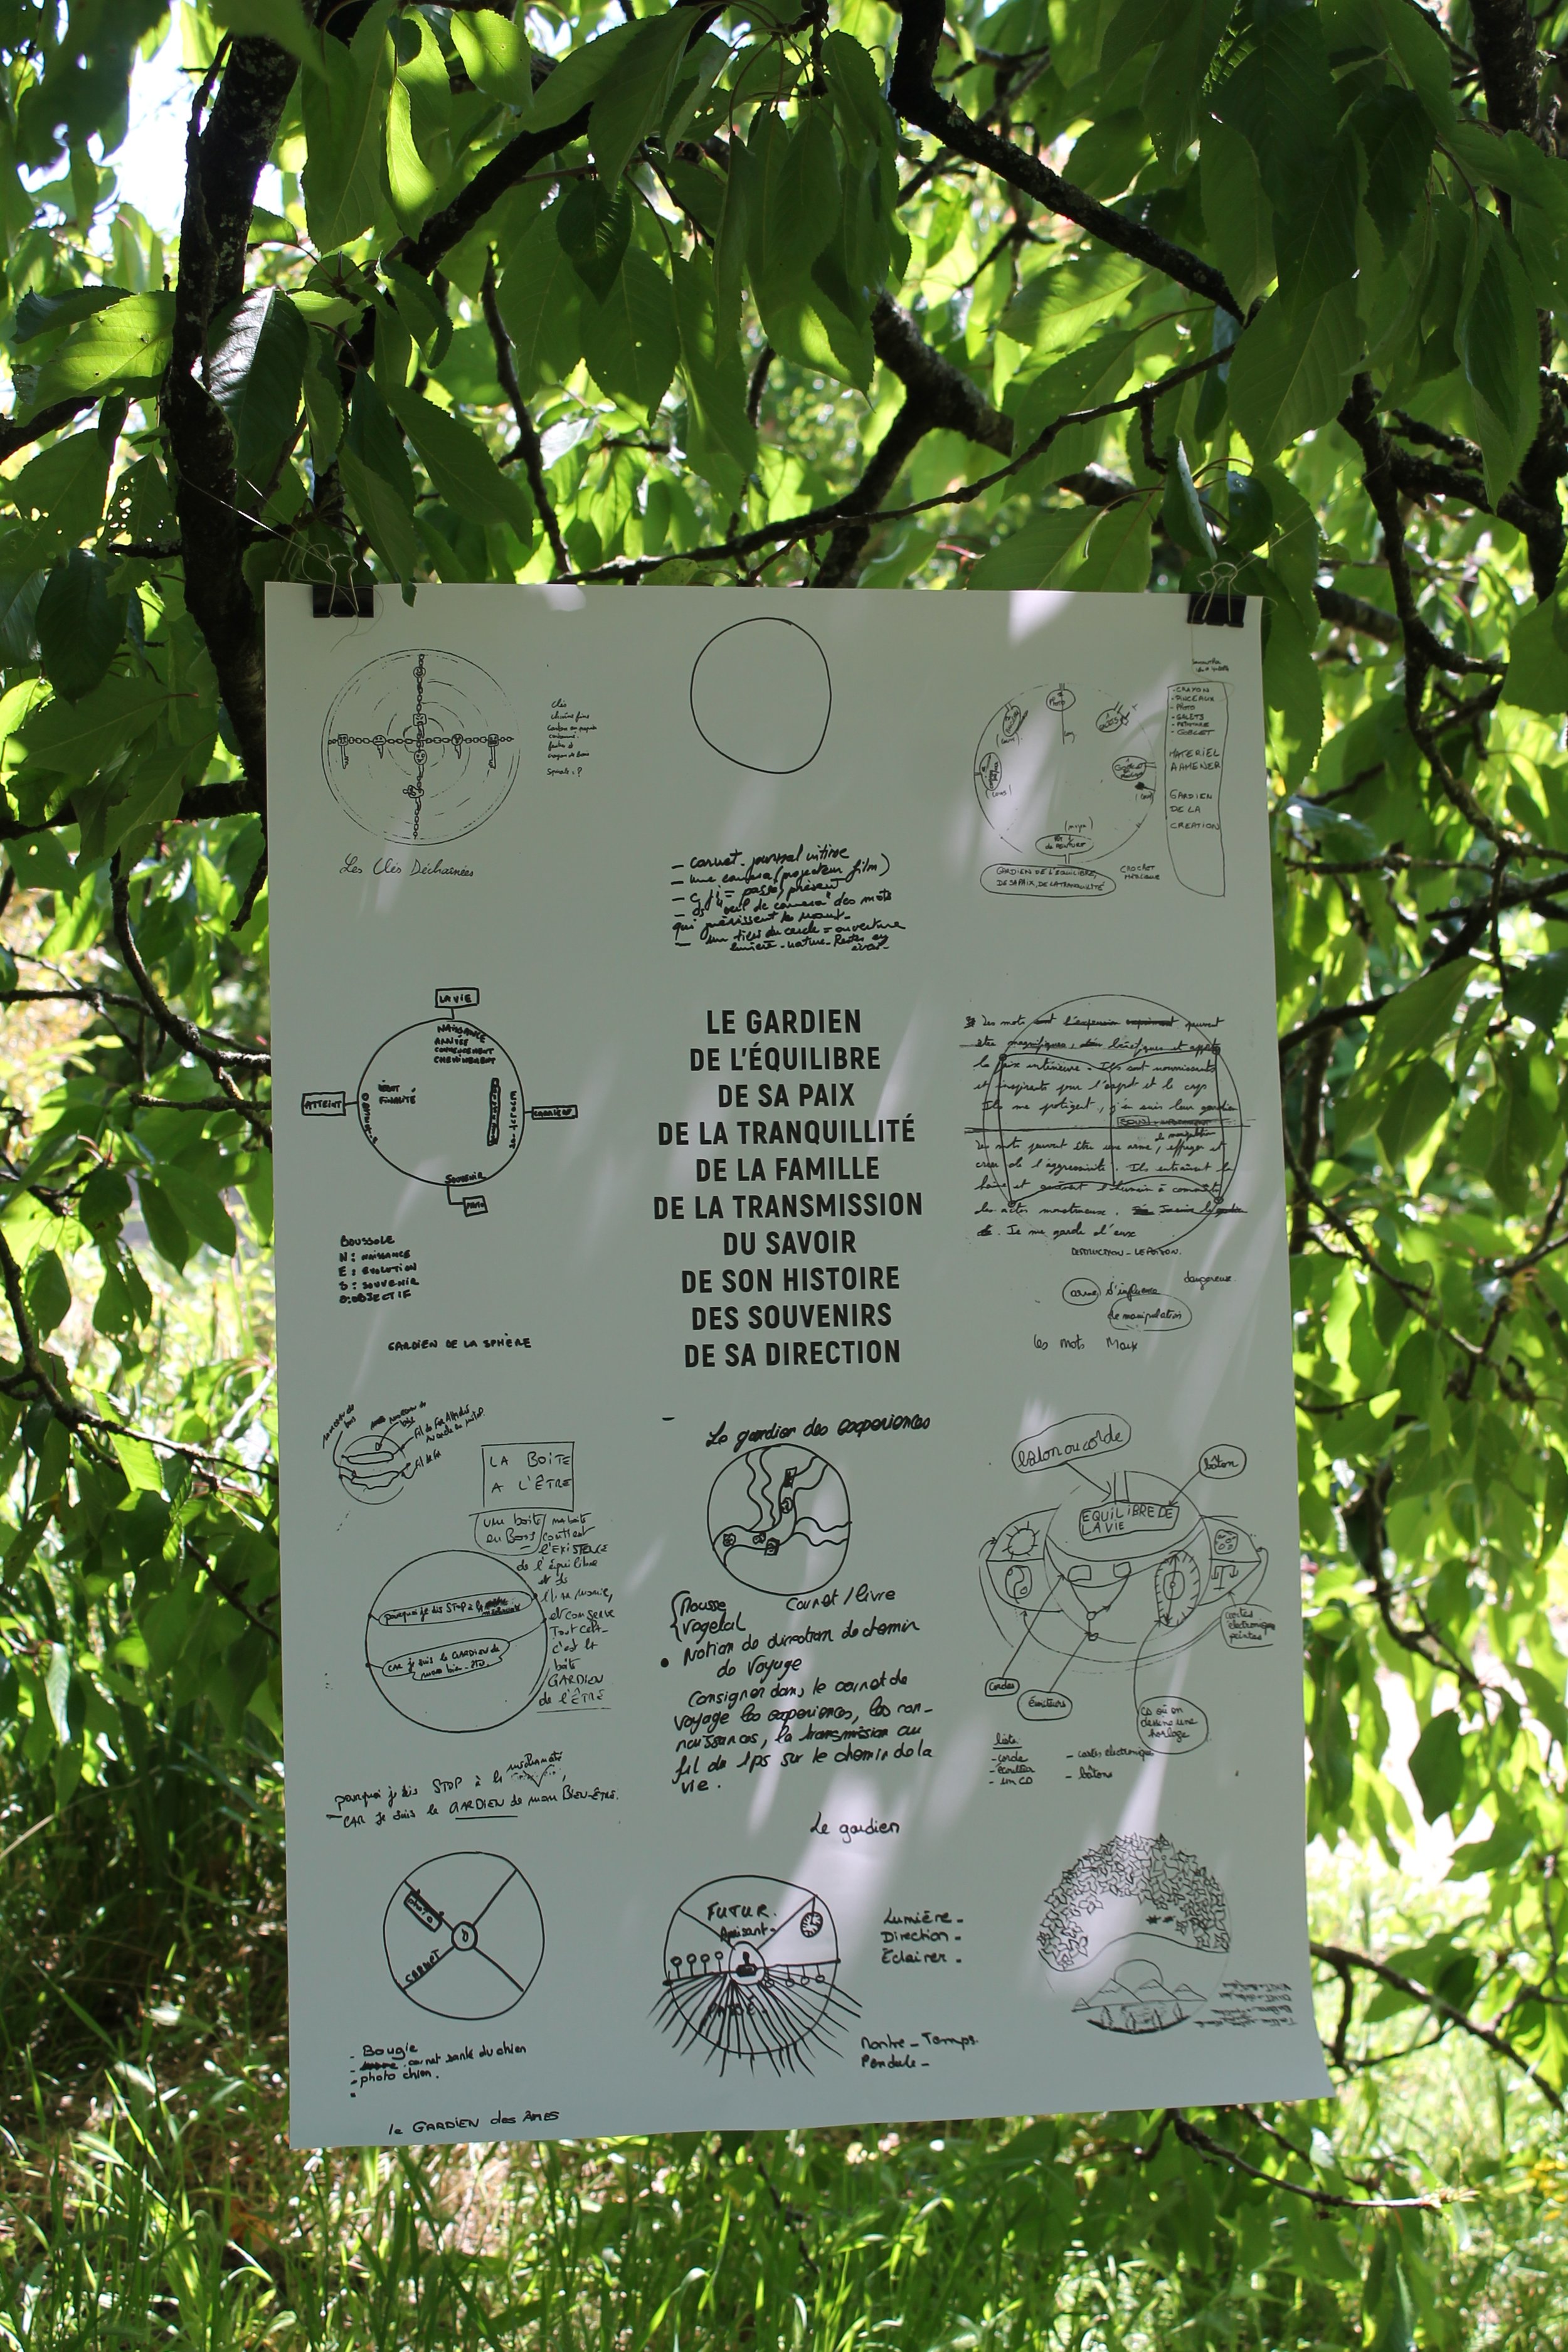 Les Clés Déchaînées
clés
chaîne fine
- carnet - journal intime
- une caméra (projecteur film)
- passé, présent
- ds "oeil de caméra" des mots
qui
- un tiers du cercle = ouverture
lumière - nature -
PHOTO
- CRAYON
- PINCEAUX
- PHOTO
- GALETS
- PEINTURE
- GOBELET
MATERIEL
A AMENER
GARDIEN
DE LA
CREATION
GARDIEN DE L'ÉQUILIBRE,
DE SA PAIX, DE LA TRANQUILITÉ
CROCHET
LA VIE
NAISSANCE
ARRIVÉE
COMMENCEMENT
CHEMINEMENT
ATTEINT
BUT
FINALITÉ
SOUVENIR
PHOTO
BOUSSOLE
N : NAISSANCE
E : EVOLUTION
S : SOUVENIR
O : OBJECTIF
GARDIEN DE LA SPHÈRE
LE GARDIEN
DE L'ÉQUILIBRE
DE SA PAIX
DE LA TRANQUILLITÉ
DE LA FAMILLE
DE LA TRANSMISSION
DU SAVOIR
DE SON HISTOIRE
DES SOUVENIRS
DE SA DIRECTION
Des mots peuvent
être magnifiques, bénéfiques et
la paix intérieure. Ils sont nourrissants
et inspirants pour l'esprit et le corps
Ils me protègent, j'en suis leur gardien
Des mots peuvent être une arme, effrayer et
créer de l'aggressivité. Ils entraînent la
haine et l'humain à
des actes monstrueux.
Je me garde d'eux
DESTRUCTION - LE POISON.
arme d'influence dangereuse
de manipulation
les mots Maux
LA BOITE
A L'ÊTRE
une boite
en Bois
ma boite
contient
l'EXISTENCE
de l'équilibre
et de
l'harmonie,
et conserve
Tout cela -
c'est la
boite
GARDIEN
de l'ÊTRE
pourquoi je dis STOP à la
CAR je suis le GARDIEN de
mon bien-être.
pourquoi je dis STOP à la
CAR je suis le GARDIEN de mon BIEN-ÊTRE.
Le gardien des expériences
Mousse
végétal
Carnet / livre
• Notion de direction de chemin
de voyage
Consigner dans le carnet de
voyage les expériences, les con-
naissances, la transmission au
fil du tps sur le chemin de la
vie.
bâton ou corde
bâton
EQUILIBRE DE
LA VIE
cartes
électroniques
peintes
cordes
CD où on
dessine une
horloge
liste
- corde
- un CD
- cartes électroniques
- bâtons
photo
CARNET
- Bougie
- carnet santé du chien
- photo chien.
le GARDIEN des ÂMES
Le gardien
FUTUR.
PASSÉ.
Lumière -
Direction -
Éclairer -
Montre - Temps
Pendule -